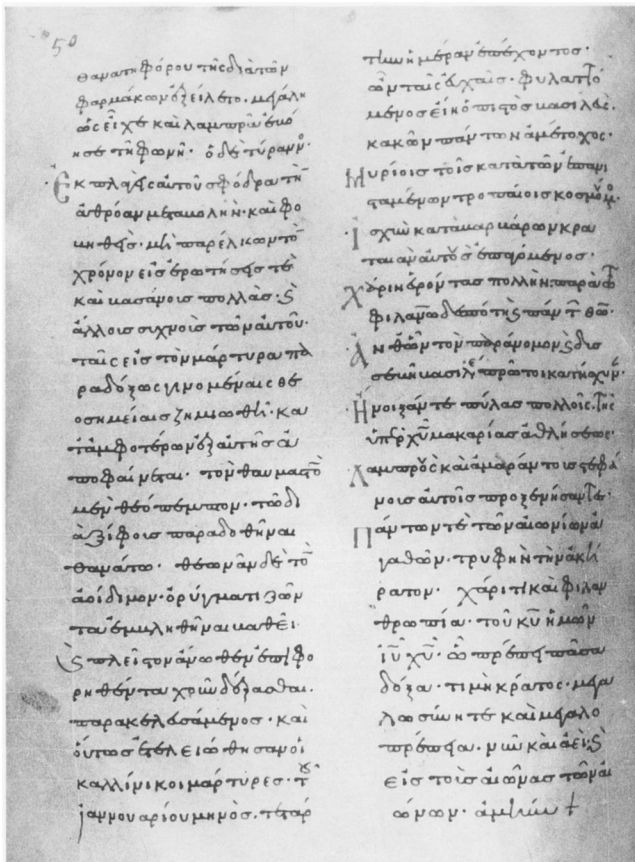 50
θανατηφόρου τῆς διὰ τῶν
φαρμάκων ἐξείλετο. μεγάλη
ὡς εἶχε καὶ λαμπρᾶ ἐβό
ησε τῆ φωνῆ. ὁ δὲ τύρανν
Ἐκπλαγεὶς αὐτοῦ σφόδρα τὴν
ἀθρόαν μεταβολὴν. καὶ φο
βηθεὶς. μὴ παρέλκων τὸν
χρόνον εἰς ἐρωτήσεις τὲ
καὶ βασάνοις πολλὰς. ϗ
ἄλλοις συχνοῖς τῶν αὐτοῦ.
ταῖς εἰς τὸν μάρτυρα πα
ραδόξως γινομέναις θε
οσημείαις ζημιωθῆ. κα
τἀμφοτέρων ἐξαυτῆς ἀ
ποφαίνεται. τὸν θαυμαστὸν
μὲν θεόπεμπτον. τῶ δι
ὰ ξίφοις παραδοθῆναι
θανάτω. θεωνᾶν δὲ τὸν
ἀοίδιμον. ὀρύγματι ζῶν
τα ἐμβληθῆναι βαθεῖ.
ϗ πλεῖστον ἄνωθεν ἐπιφο
ρηθέντα χοῦν δέξασθαι.
παρακελευσάμενος. καὶ
οὕτως ἐτελειώθησαν οἱ
καλλίνικοι μάρτυρες. τοῦ
ἰαννουαρίου μηνὸς. τετάρ
τὴν ἡμέραν ἐπέχοντος.
ὧν ταῖς εὐχαῖς. φυλαττό
μενος εἴη ὁ πιστὸς βασιλεὺς.
κακῶν πάντων ἀμέτοχος.
Μυρίοις τοῖς κατὰ τῶν ἐπανι
σταμένων τροπαίοις
Ἰσχὺν κατὰ βαρβάρων κρα
ταιὰν αὐτοῦ
Χάριν εὑρόντας πολλὴν παρὰ τῶ
δεσπότη θῶ.
τὸν παράνομον ϗ δυσ
σεβῆ πρῶτοι
Ἤνοιξάν τε πύλας πολλοῖς τῆς
ὑπὲρ χῦ μακαρίας ἀθλήσεως.
Λαμπροὺς καὶ ἀμαράντοις στεφά
νοις αὐτοῖς προξενήσαντες.
Πάντων τὲ τῶν αἰωνίων ἀ
γαθῶν. τρυφὴν τὴν ἀκή
ρατον. χάριτι καὶ φιλαν
θρωπία. τοῦ κῦ ἡμῶν
ἰῦ χῦ. ὧ πρέπει πᾶσα
δόξα. τιμὴ κράτος. μεγα
λωσύνη τὲ καὶ μεγαλο
πρέπεια. νῦν καὶ ἀεὶ ϗ
εἰς τοὺς αἰῶνας τῶν αἰ
ώνων. ἀμήν